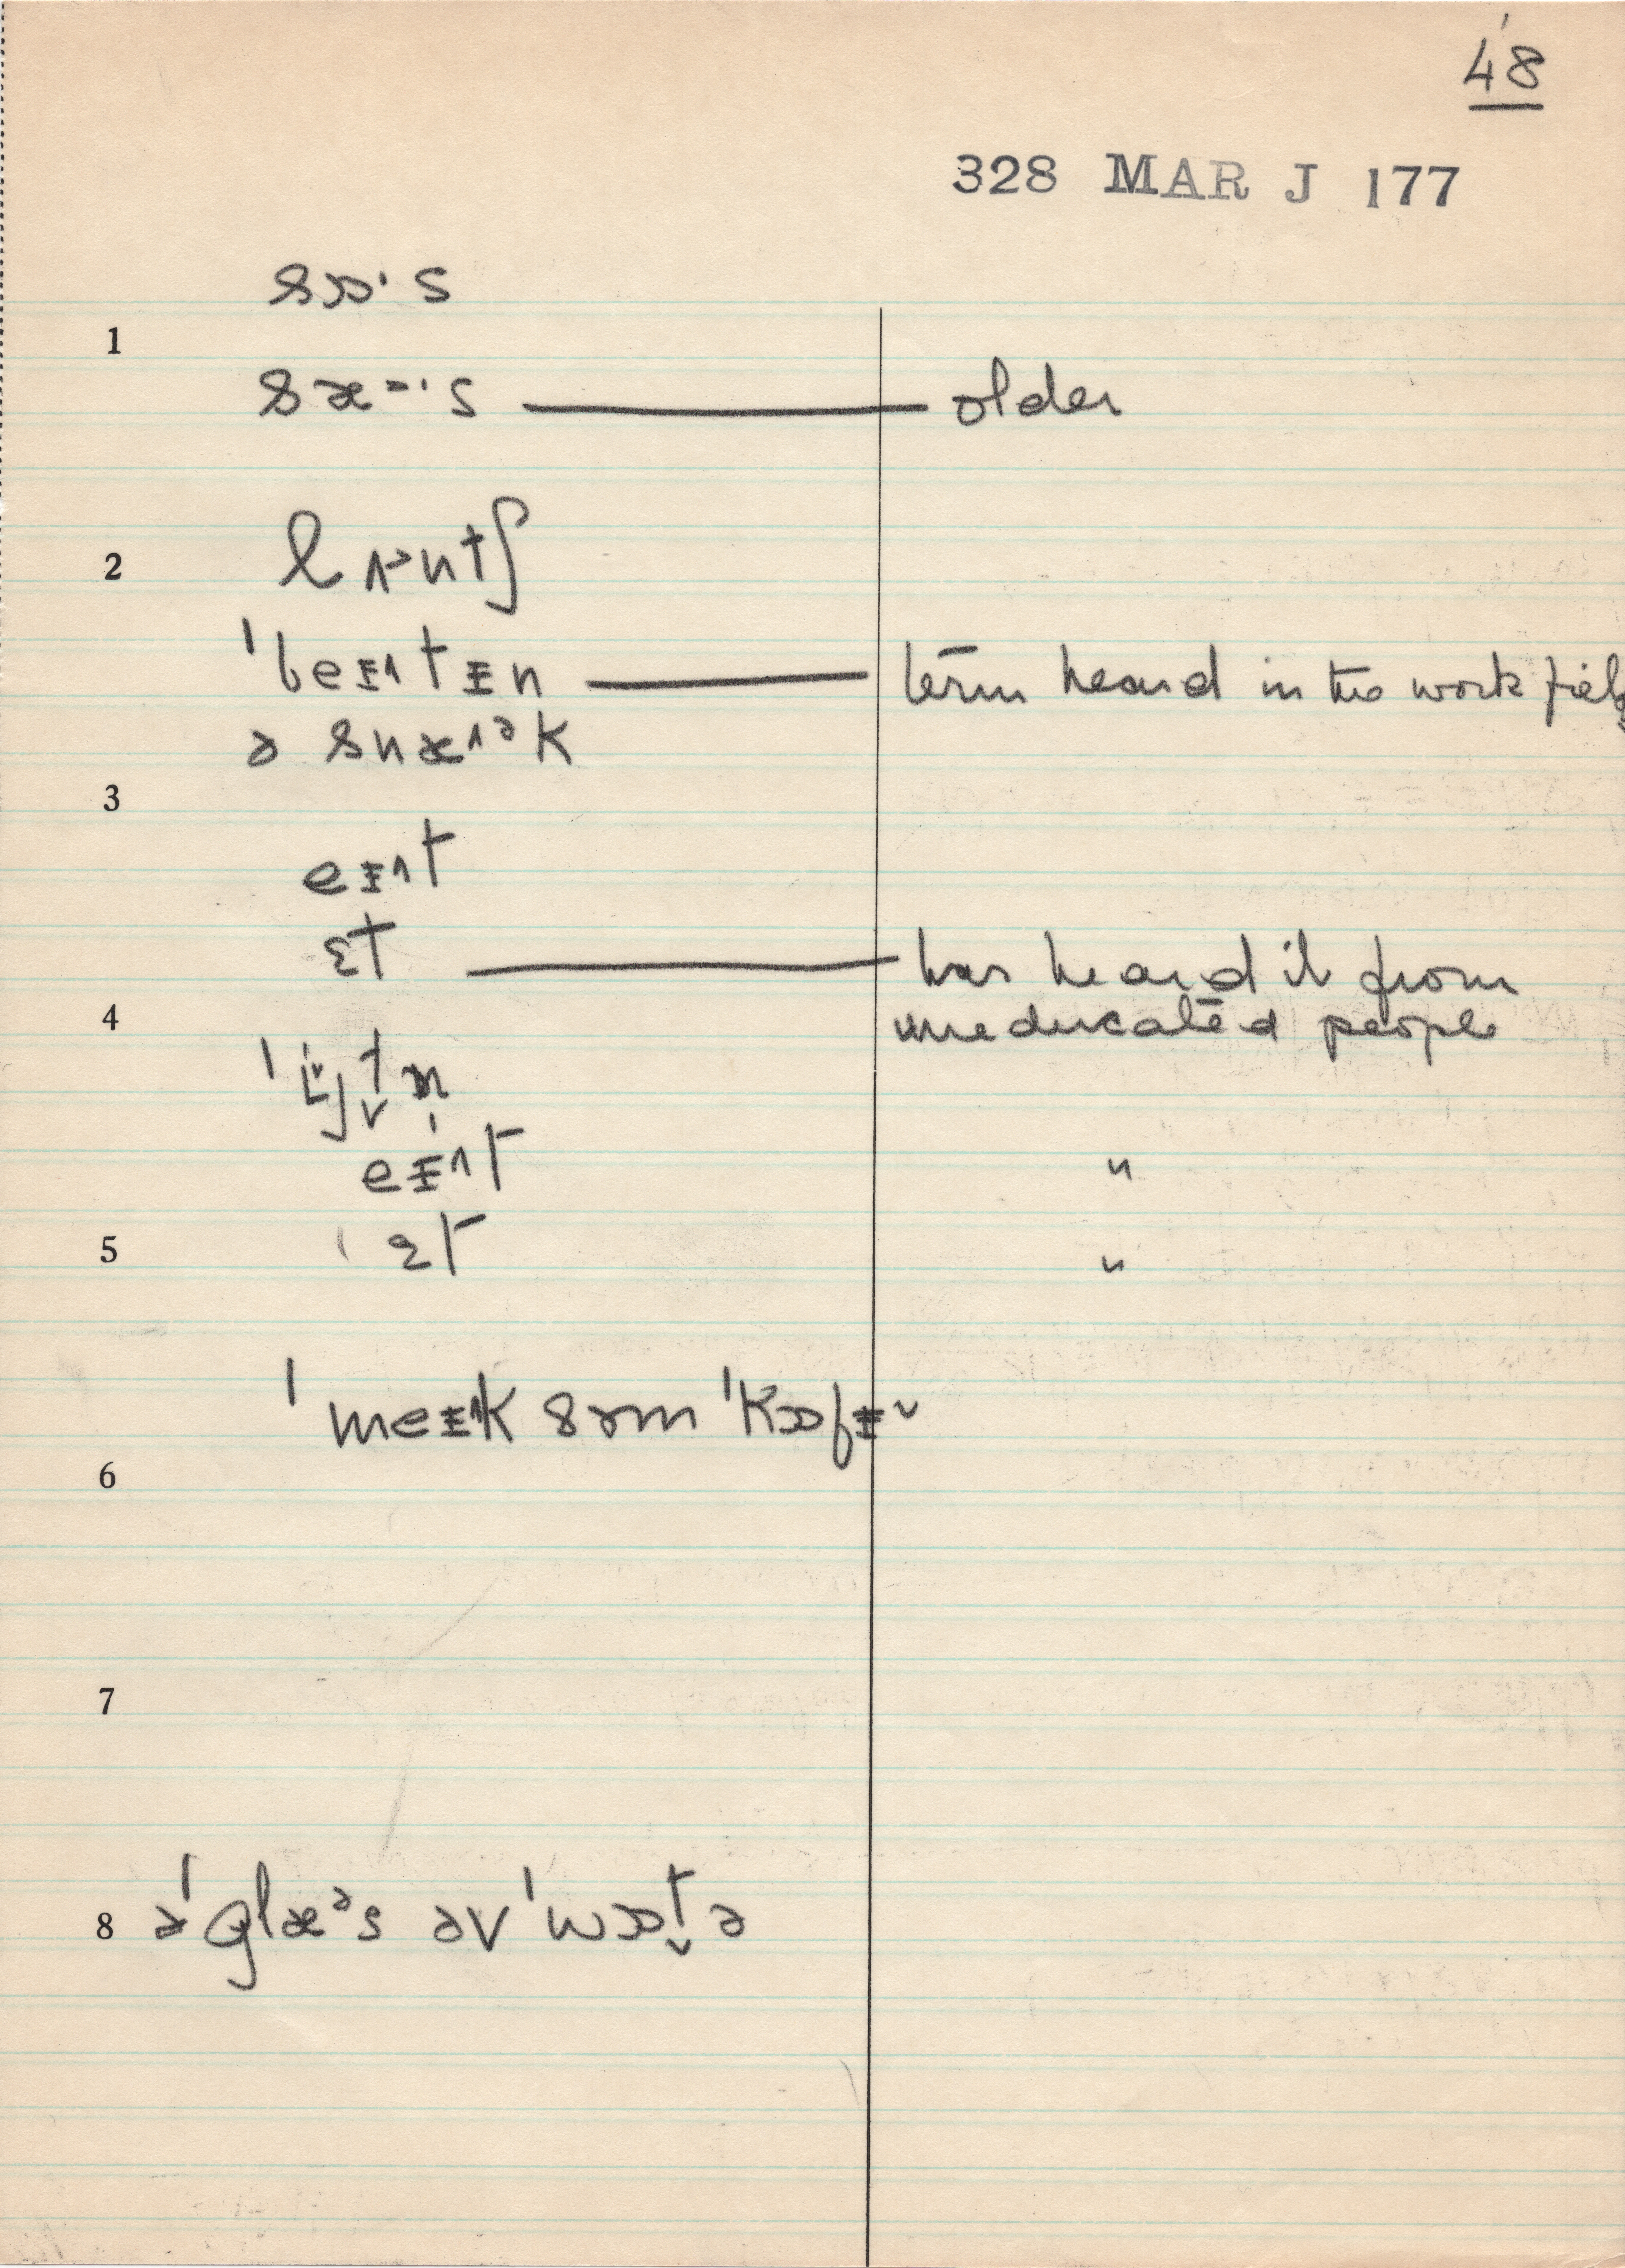 48
328 MAR J 177
sɔ·s
1
sæ᷈·s — older
2 lʌ˃ntʃ
ˈbeɪ˄tɪn — term heard in the work field
ə snæ˄ᵊk
3
eɪ˄t
ɛt — has heard it from
4 uneducated people
ˈi̬t̬n̩
eɪ˄t "
5 ɛt "
ˈmeɪ˄k sɤm ˈkɒfɪ˅
6
7
8 əˈglæᵊs əv ˈwɒt̬ə